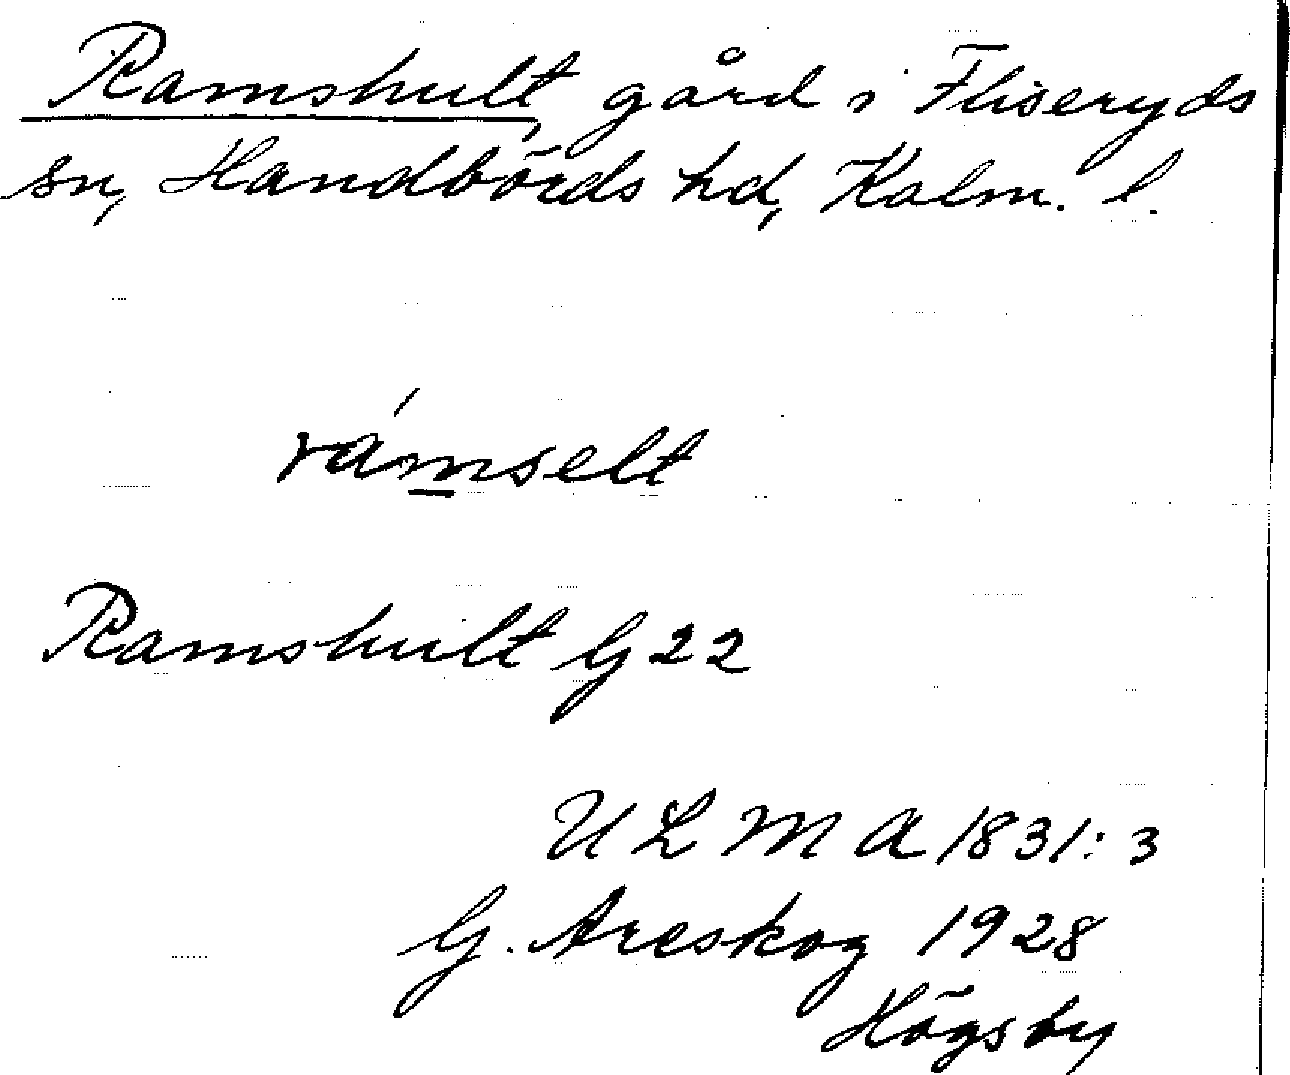 Ramshult, gård i Fliseryds
sn, Handbörds hd, Kalm. l.
rámselt
Ramshult G 22
ULMA 1831:3
G. Areskog 1928
Högsby